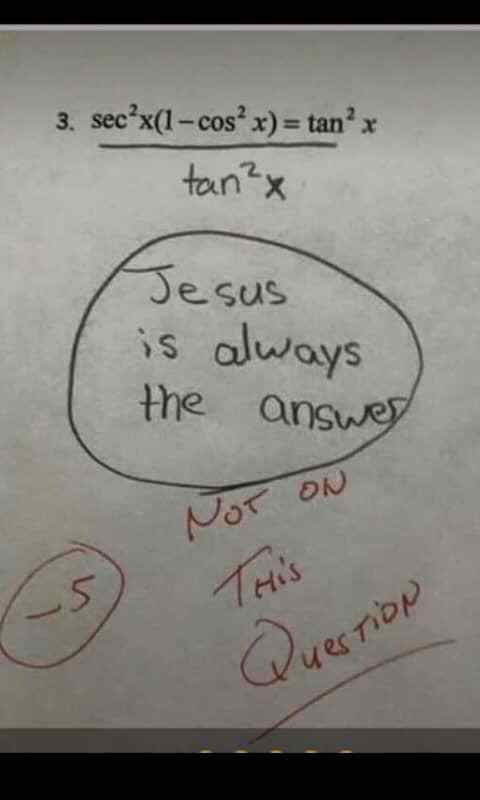 3. sec²x(1−cos² x) = tan² x
tan²x
Jesus
is always
the answer
NOT ON
THIS
QUESTION
−5